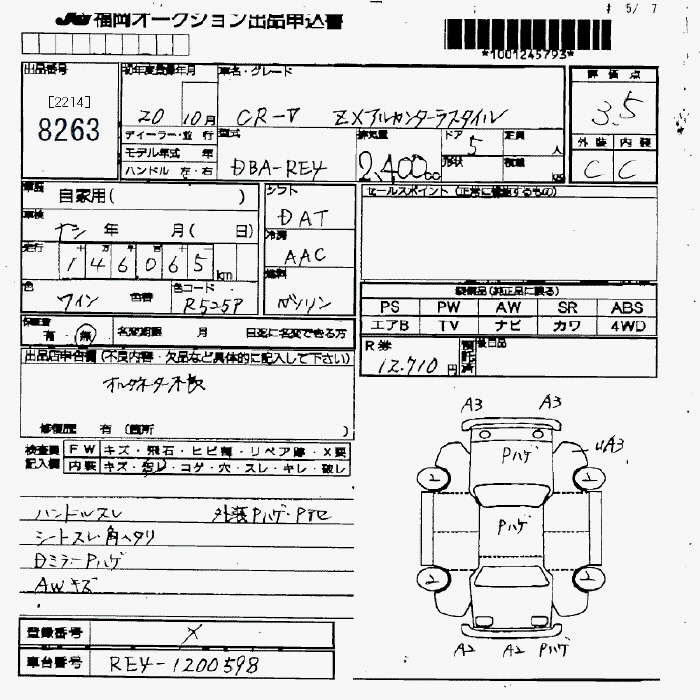 JU福岡オークション出品申込書
5/ 7
*1001245793*
出品番号
[2214]
8263
初年度登録年月
20 10月
車名・グレード
CR-V ZXアルカンターラスタイル
評価点
3.5
外装 内装
C C
ディーラー・並行
モデル年式 年
ハンドル 左・右
型式
DBA-RE4
排気量
2,400cc
ドア
5
形状
定員
人
積載
車歴
自家用( )
車検
ナシ 年 月( 日)
走行
十 万 千 百 十
146065km
色
ワイン 色替
色コード
R525P
シフト
DAT
冷房
AAC
燃料
ガソリン
セールスポイント(正常に機能するもの)
装備品(純正品に限る)
PS PW AW SR ABS
エアB TV ナビ カワ 4WD
保証書
有・無
名変期限 月 日迄に名変できる方
R券
12,710円
預託済
後日品
出品店申告欄(不良内容・欠品など具体的に記入して下さい)
オルタネーター不良
修復歴 有(箇所 )
検査員記入欄
FW キズ・飛石・ヒビ種・リペア跡・X要
内装 キズ・汚レ・コゲ・穴・スレ・キレ・破レ
ハンドルスレ 外装Pハゲ・Pボセ
シートスレ・角ヘタリ
DミラーPハゲ
AWキズ
A3 A3
Pハゲ
UA3
2 2
Pハゲ
2 2
A2 A2 Pハゲ
登録番号 X
車台番号 RE4-1200598